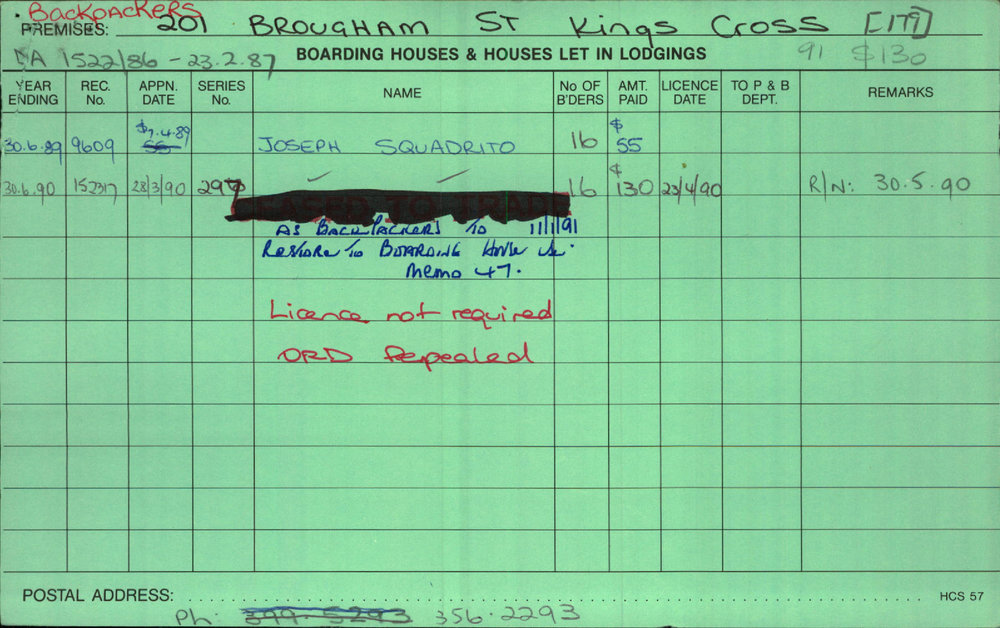 Backpackers
PREMISES: 201 BROUGHAM ST Kings Cross [179]
DA 1522/86 - 23.2.87 BOARDING HOUSES & HOUSES LET IN LODGINGS 91 $130
YEAR ENDING REC. No. APPN. DATE SERIES No. NAME No OF B'DERS AMT. PAID LICENCE DATE TO P & B DEPT. REMARKS
30.6.89 9609 7.4.89 $55 JOSEPH SQUADRITO 16 $55
30.6.90 152317 28/3/90 297 ✓ ✓ 16 $130 23/4/90 R/N: 30.5.90
CEASED TO TRADE
AS BACKPACKERS TO 11/1/91
RESTORE TO BOARDING House Use.
Memo 47.
Licence not required
ORD Repealed
POSTAL ADDRESS: HCS 57
Ph: 399-5293 356.2293